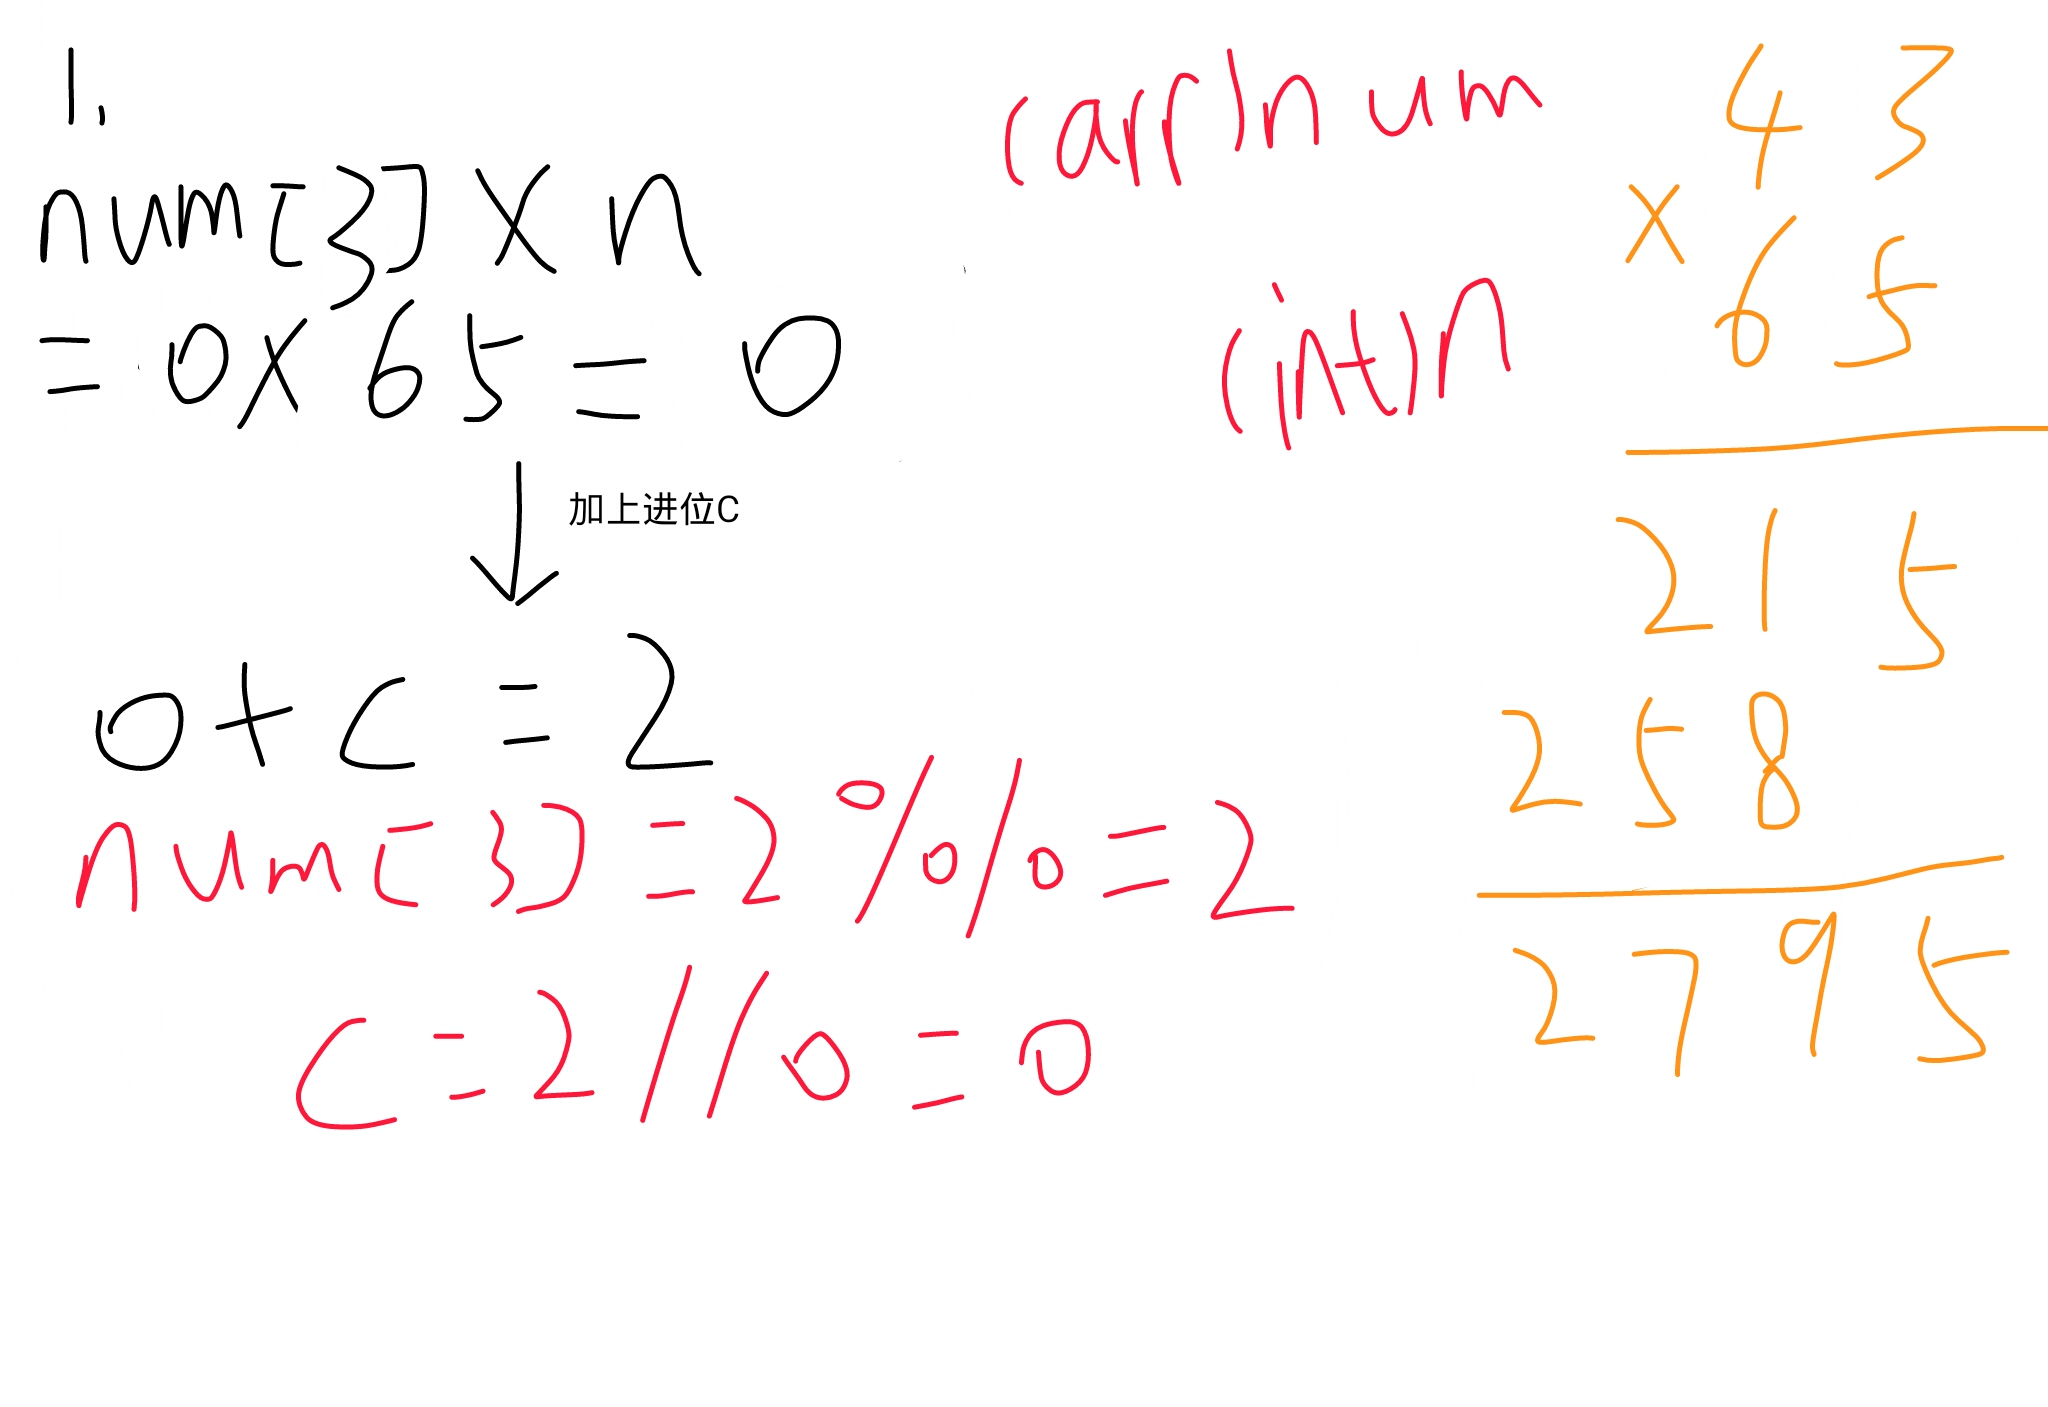 1.
num[3]×n
=0×65=0
加上进位C
0+c=2
num[3]=2%10=2
c=2//0=0
(arr)num
(int)n
43
×65
215
258
2795